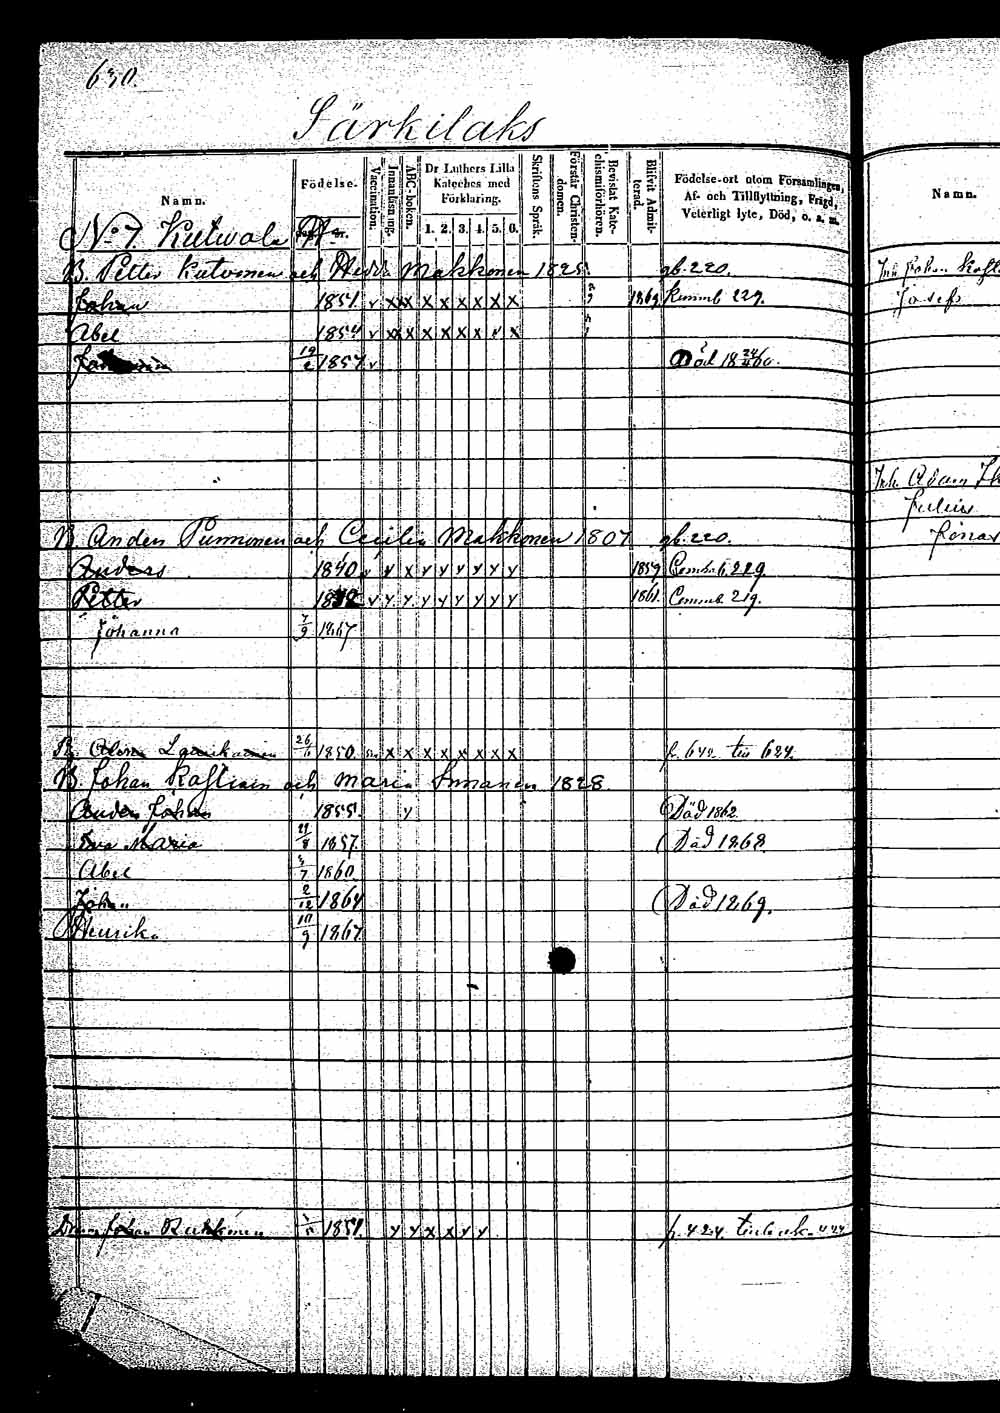 630.
Särkilaks
Namn.
Födelse.
Vaccination.
Innanläsning.
ABC-boken.
Dr Luthers Lilla Kateches med Förklaring.
1. 2. 3. 4. 5. 6.
Skriftens Språk.
Förstår Christendomen.
Bevistat Katechismiförhören.
Blifvit Admitterad.
Födelse-ort utom Församlingen, Af- och Tillflyttning, Frägd, Veterligt lyte, Död, o. s. m.
Namn.
No 7. Kutwala
B. Petter Kutvonen och Hedda Makkonen 1825. gb. 220.
Johan 1851. v x x x x x x x x x 1869 Kommb 229.
Abel 1854 v x x x x x x x v x
19/2 1857 v Död 18 24/4 60.
B. Anders Punnonen och Cecilia Makkonen 1807 gb. 220.
Anders 1840 v y x y y y y y y 1859 Commb. 229.
Petter v y y y y y y y y 1861. Commb 219.
Johanna 7/9 1867
26/11 1850. x x x x x x x x p. 640 624.
B. Johan och Maria Immonen 1828
Anders Johan 1855. y Död 1862
Eva Maria 21/8 1857. Död 1868
Abel 3/7 1860
Johan 2/12 1864 Död 1869.
Henrika 10/9 1867
Johan 1851. y y x x y y p. 424
Johan
Josef
Inh. Adam
Julius
Jonas